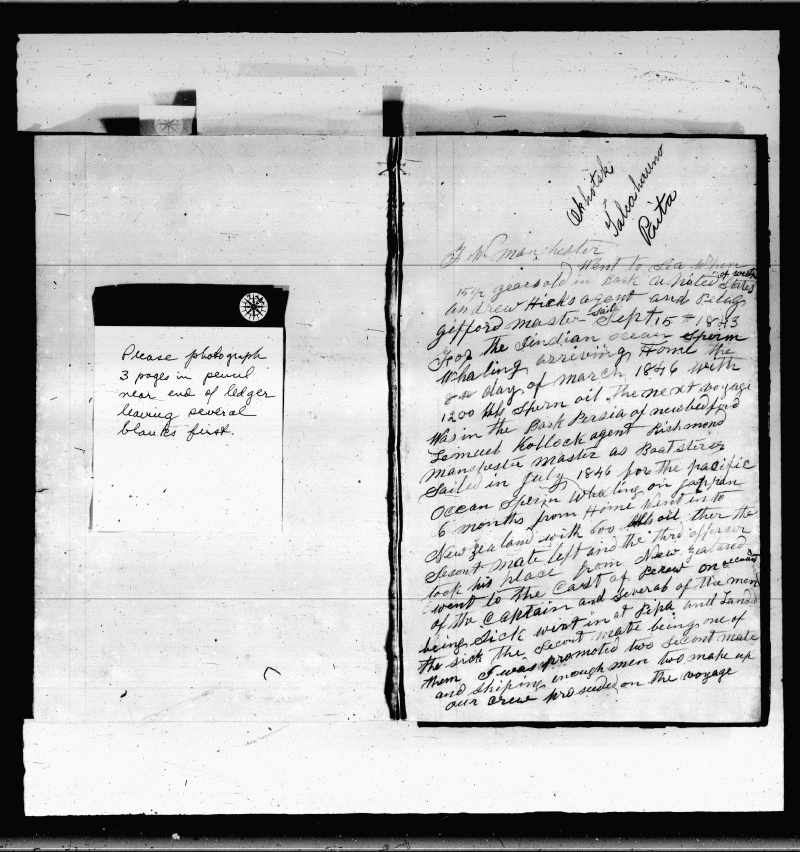 Please photograph
3 pages in pencil
near end of ledger
leaving several
blanks first.
Okhotsk
Talcahauno
Paita
F W Manchester
Went to Sea When
15 1/2 years old in Bark United States of west
Andrew Hicks agent and Pelag
Gifford master Sail Sept 15th 1843
For the Iindian ocean Sperm
Whaling arriving Home the
8th day of march 1846 with
1200 bbls Spern oil the next voyage
Was in the Bark Persia of newbedford
Lemuel Kollock agent Richmond
manchester master as Boatsterer
Sailed in July 1846 for the pacific
Ocean Sperm Whaling on Jappan
6 months from Home Went in to
New Zealand with 600 bbls oil ther the
Secont mate left and the third offerser
took his place from New Zealand
went to the Cast of Perew on account
of the Captain and severeb of the men
being Sick went in at Pipa and Land
the sick the Secont mate being one of
them I was promoted two Secont mate
and shiping enough men two make up
our crew proseeded on the voyage